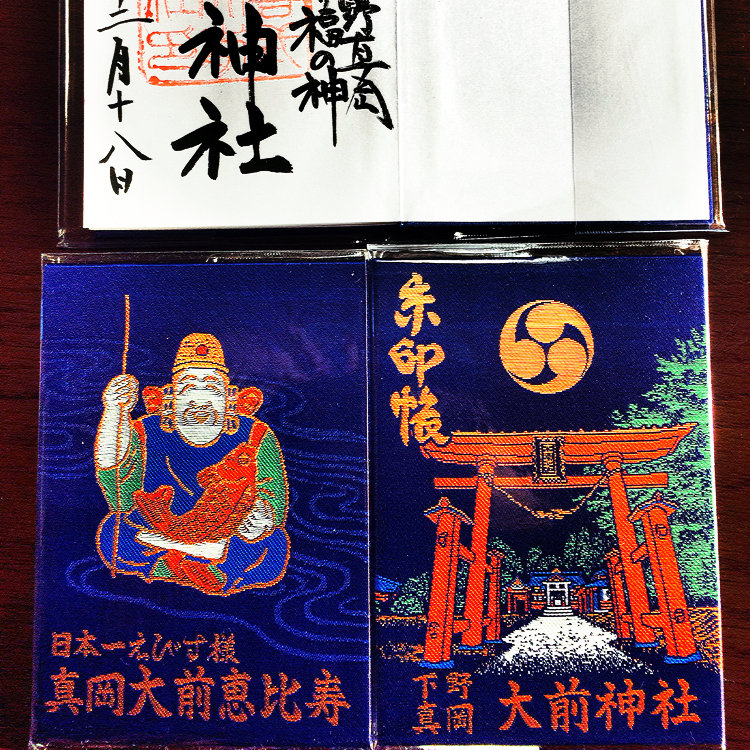 野真岡
福の神
神社
十二月十八日
朱印帳
日本一えびす様
真岡大前恵比寿
下野
真岡
大前神社